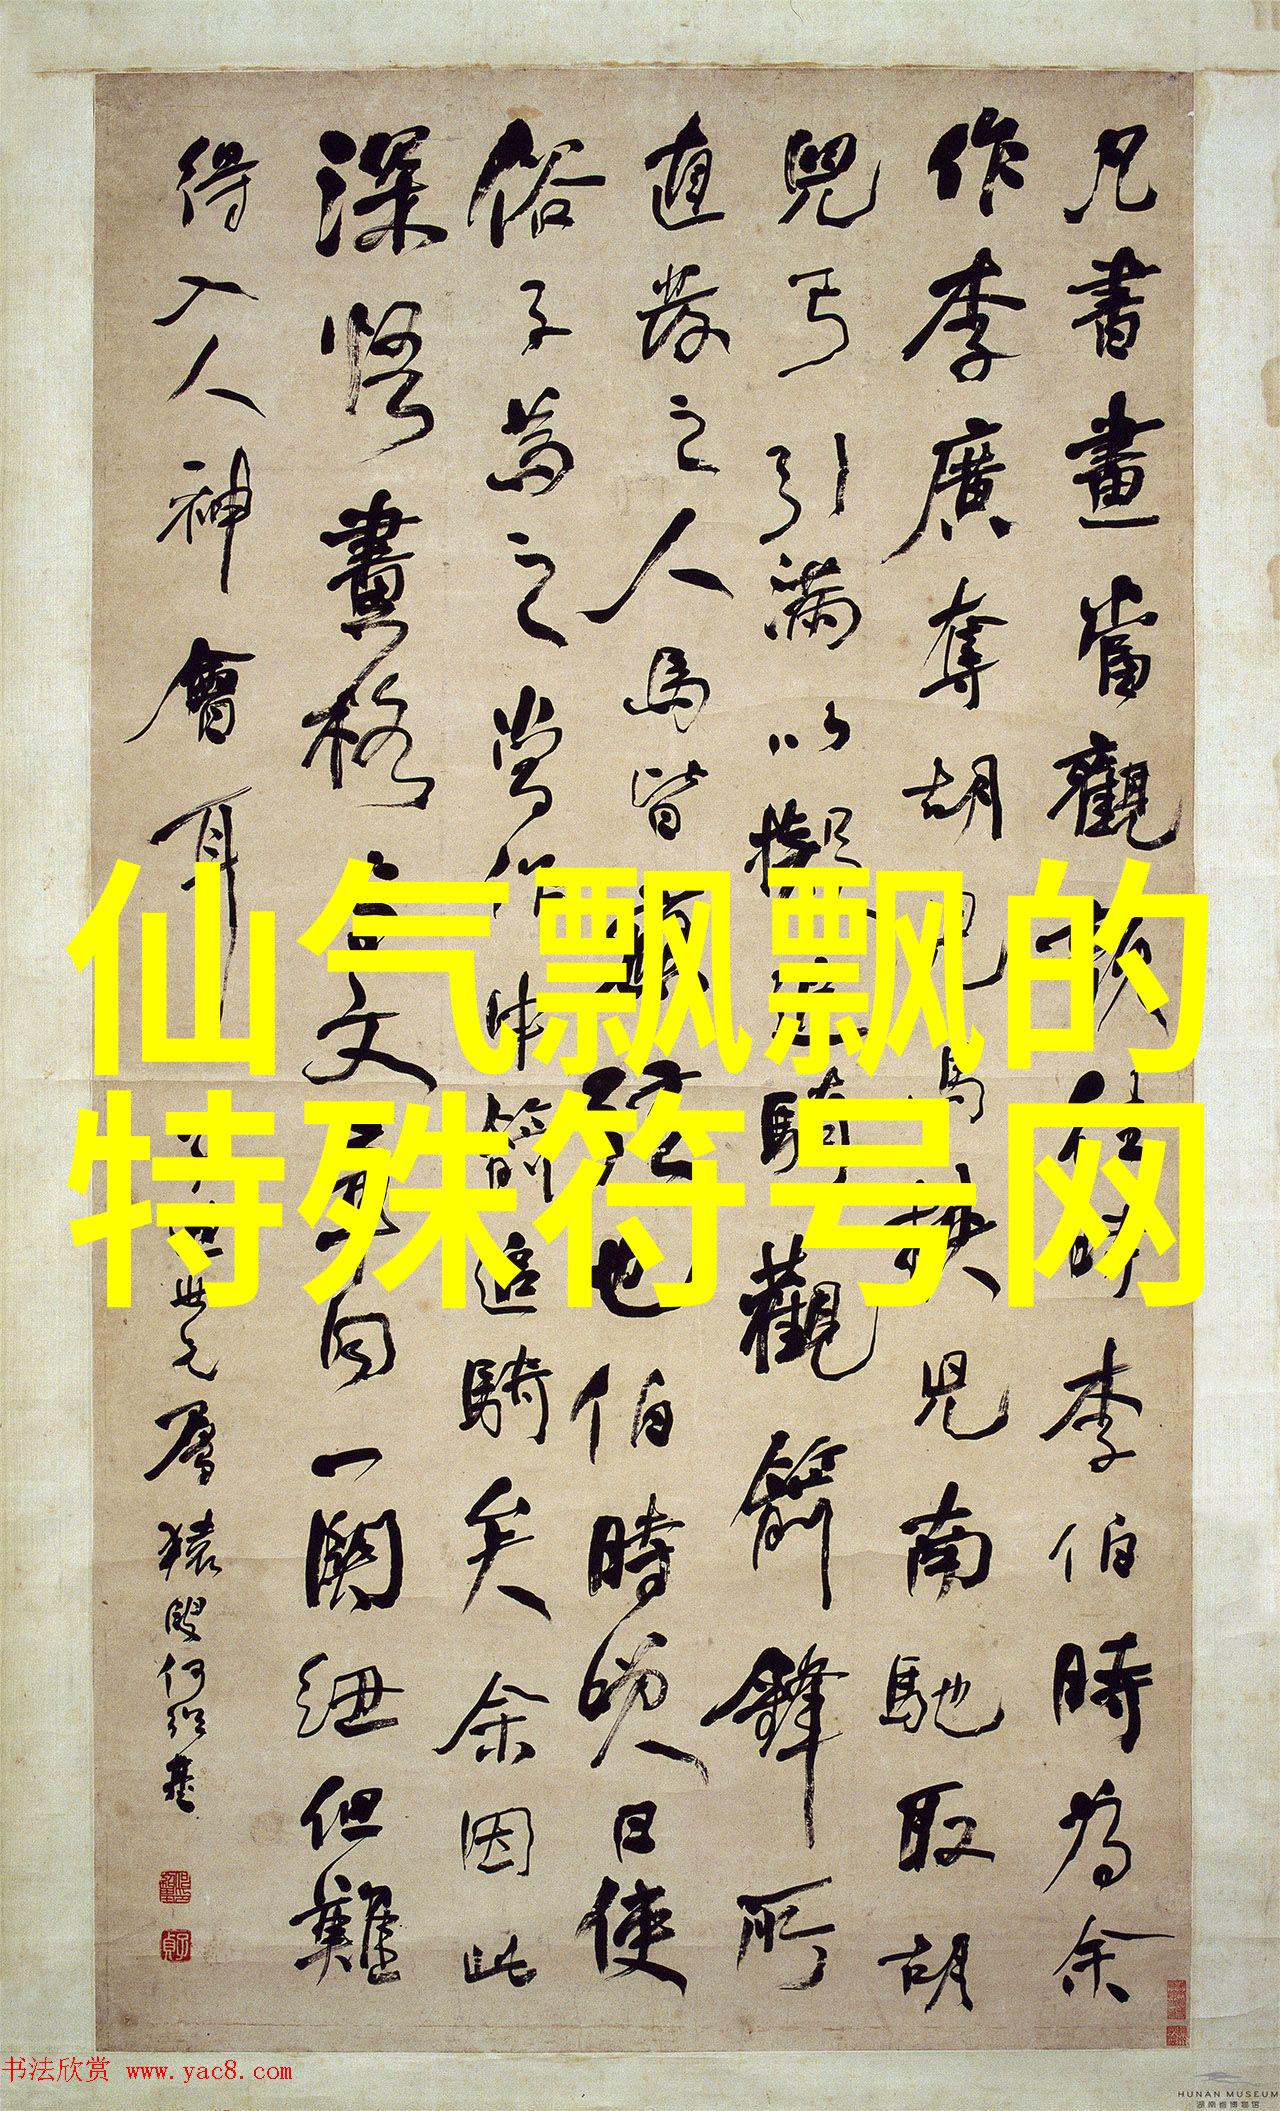 仙气飘飘的
特殊符号网
凡書畫當觀韻往時李伯時為余
作李廣奪胡兒馬挾兒南馳取胡
兒弓引滿以擬追騎觀箭鋒所
直發之人馬皆應弦也伯時笑曰使
俗子為之當作中箭追騎矣余因此
深悟畫格與文章同一關紐但難
得入人神會耳
世兄屬 猿叟何紹基
书法欣赏 www.yac8.com
HUNAN MUSEUM
湖南省博物馆